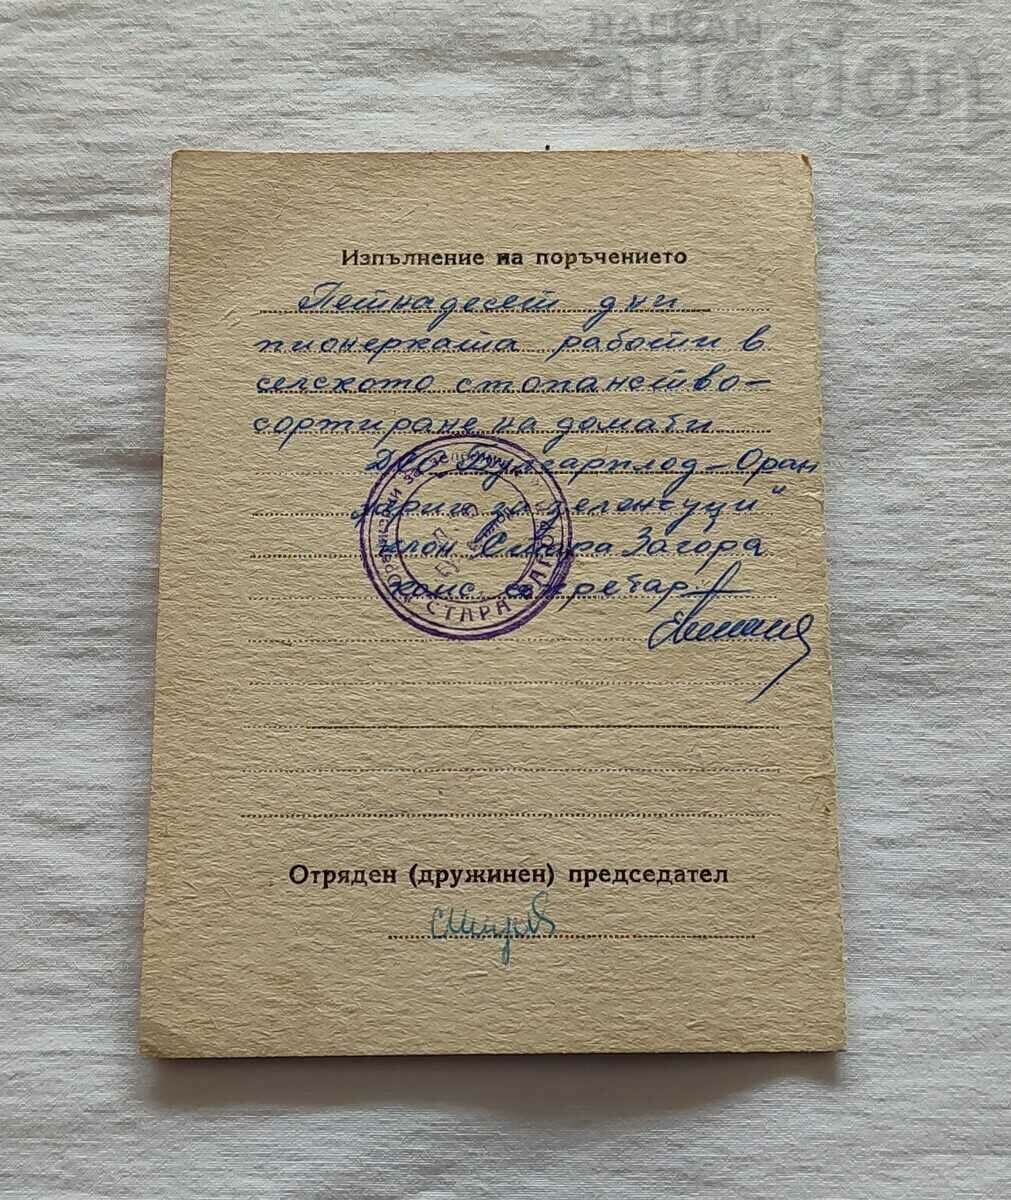 БАЛКАН
auction
Изпълнение на поръчението
Петнадесет дни
пионерката работи в
селското стопанство-
сортиране на домати
ДСО "Булгарплод-Оран
жерии за зеленчуци"
клон Стара Загора
комс. секретар
СТАРА ЗАГОРА
Отряден (дружинен) председател